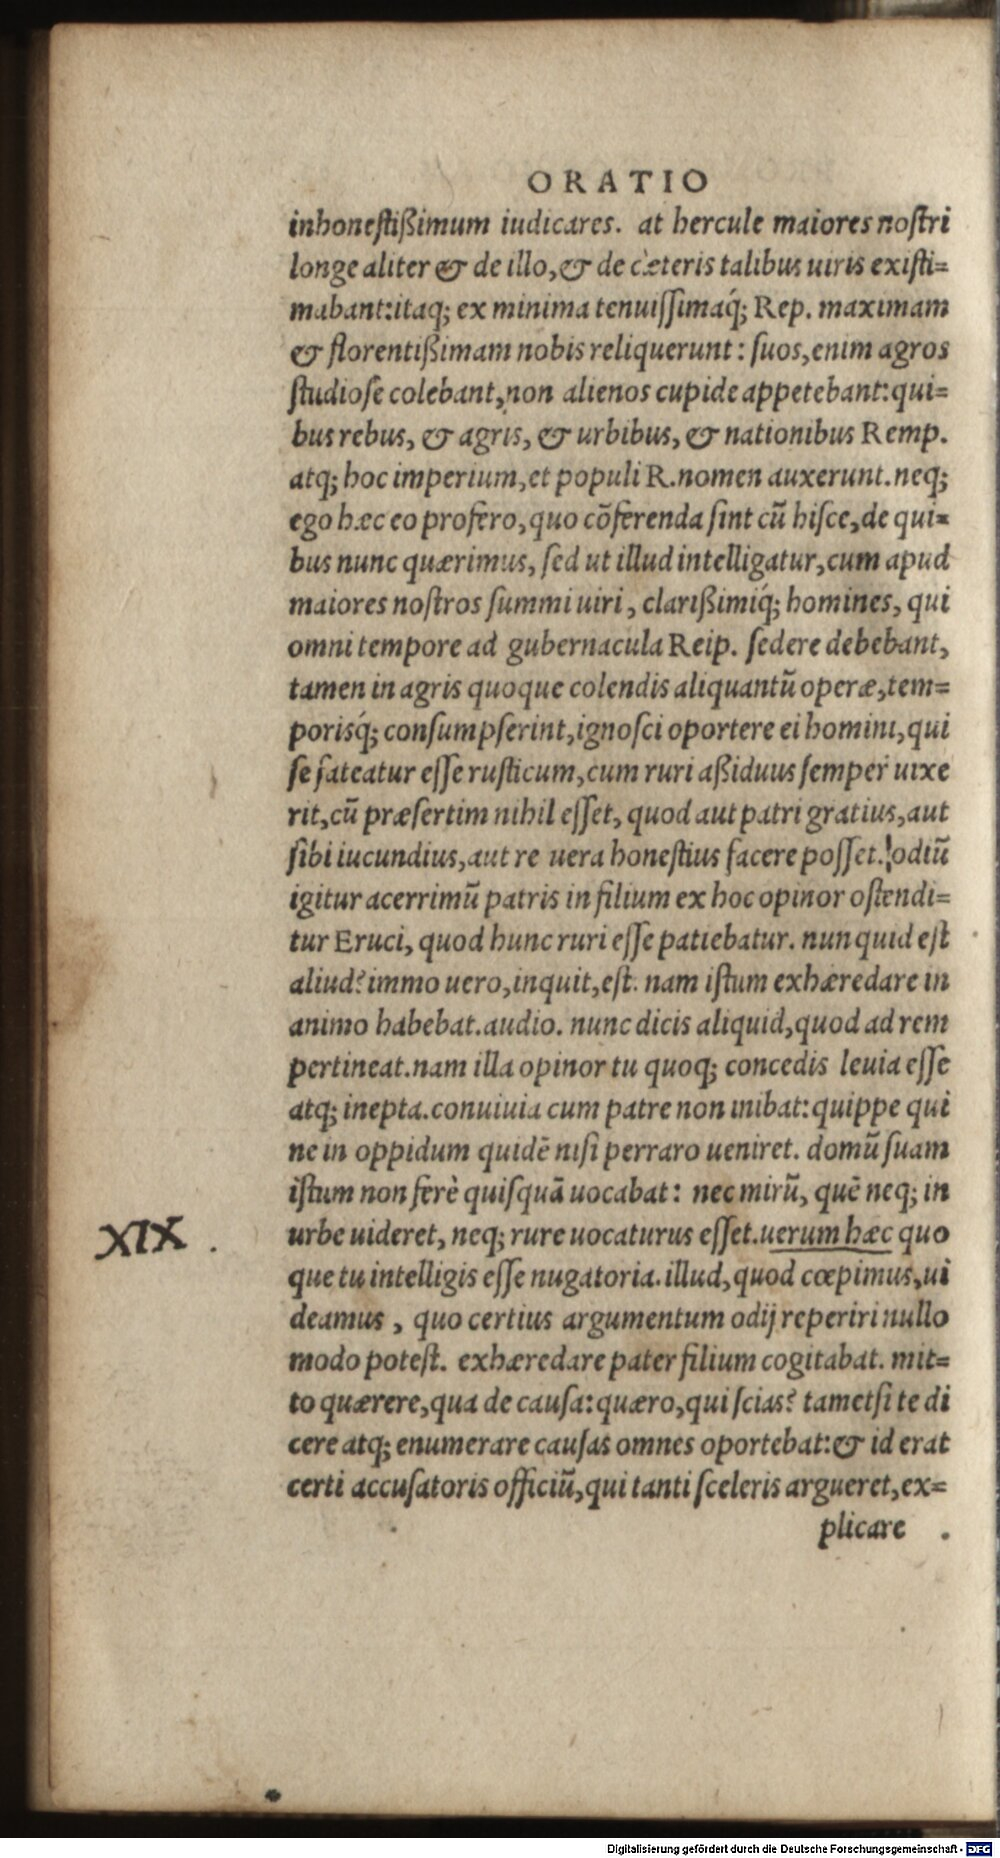 ORATIO
inhonestißimum iudicares. at hercule maiores nostri
longe aliter & de illo, & de cæteris talibus uiris existi=
mabant: itaq; ex minima tenuissimaq́; Rep. maximam
& florentißimam nobis reliquerunt: suos, enim agros
studiose colebant, non alienos cupide appetebant: qui=
bus rebus, & agris, & urbibus, & nationibus Remp.
atq; hoc imperium, et populi R. nomen auxerunt. neq;
ego hæc eo profero, quo cōferenda sint cū hisce, de qui=
bus nunc quærimus, sed ut illud intelligatur, cum apud
maiores nostros summi uiri, clarißimiq́; homines, qui
omni tempore ad gubernacula Reip. sedere debebant,
tamen in agris quoque colendis aliquantū operæ, tem=
porisq́; consumpserint, ignosci oportere ei homini, qui
se fateatur esse rusticum, cum ruri aßiduus semper uixe
rit, cū præsertim nihil esset, quod aut patri gratius, aut
sibi iucundius, aut re uera honestius facere posset. odiū
igitur acerrimū patris in filium ex hoc opinor ostendi=
tur Eruci, quod hunc ruri esse patiebatur. nunquid est
aliud? immo uero, inquit, est. nam istum exhæredare in
animo habebat. audio. nunc dicis aliquid, quod ad rem
pertineat. nam illa opinor tu quoq; concedis leuia esse
atq; inepta. conuiuia cum patre non inibat: quippe qui
ne in oppidum quidē nisi perraro ueniret. domū suam
istum non ferè quisquā uocabat: nec mirū, quē neq; in
urbe uideret, neq; rure uocaturus esset. uerum hæc quo
XIX.
que tu intelligis esse nugatoria. illud, quod cœpimus, ui
deamus, quo certius argumentum odij reperiri nullo
modo potest. exhæredare pater filium cogitabat. mit=
to quærere, qua de causa: quæro, qui scias? tametsi te di
cere atq; enumerare causas omnes oportebat: & id erat
certi accusatoris officiū, qui tanti sceleris argueret, ex=
plicare
Digitalisierung gefördert durch die Deutsche Forschungsgemeinschaft - DFG